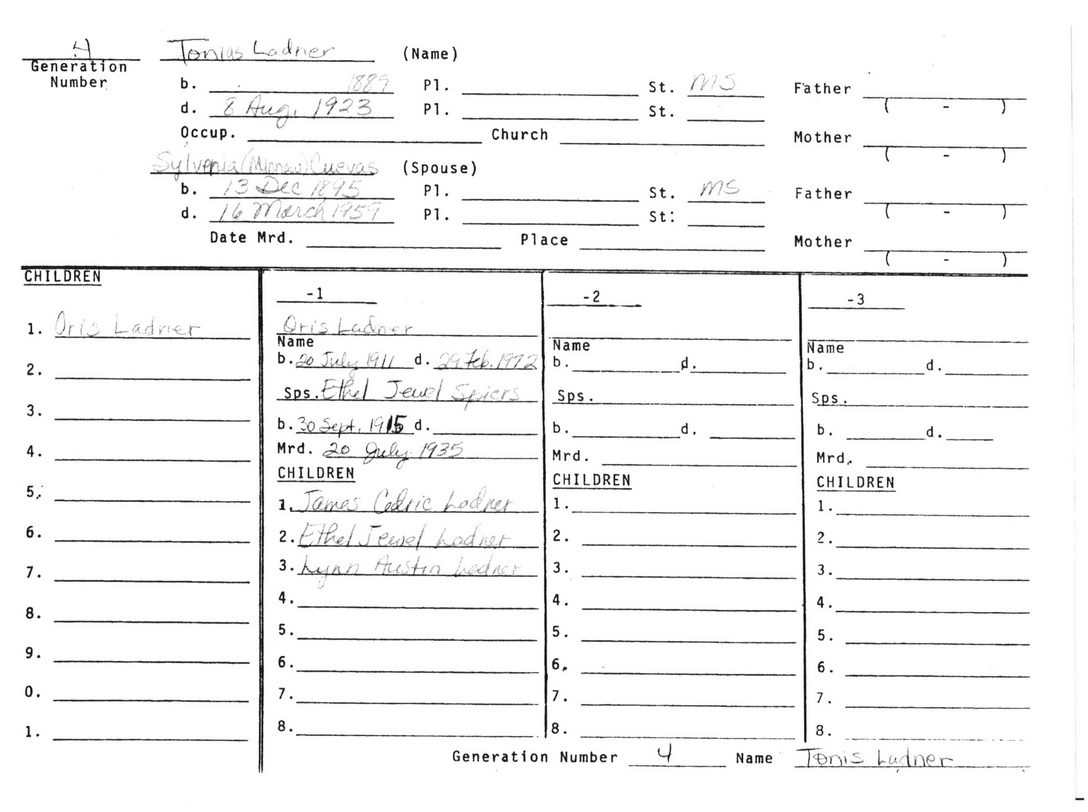 4 Tonias Ladner (Name)
Generation Number
b. 1889 Pl. St. MS Father ( - )
d. 8 Aug, 1923 Pl. St.
Occup. Church Mother ( - )
Sylvenia (Minnow) Cuevas (Spouse)
b. 13 Dec 1895 Pl. St. MS Father ( - )
d. 16 March 1959 Pl. St:
Date Mrd. Place Mother ( - )
CHILDREN
1. Oris Ladner
2.
3.
4.
5.
6.
7.
8.
9.
0.
1.
-1
Oris Ladner
Name
b. 20 July 1911 d. 29 Feb. 1972
Sps. Ethel Jewel Spiers
b. 30 Sept. 1915 d.
Mrd. 20 July 1935
CHILDREN
1. James Cedric Ladner
2. Ethel Jewel Ladner
3. Lynn Austin Ladner
4.
5.
6.
7.
8.
-2
Name
b. d.
Sps.
b. d.
Mrd.
CHILDREN
1.
2.
3.
4.
5.
6.
7.
8.
-3
Name
b. d.
Sps.
b. d.
Mrd.
CHILDREN
1.
2.
3.
4.
5.
6.
7.
8.
Generation Number 4 Name Tonis Ladner